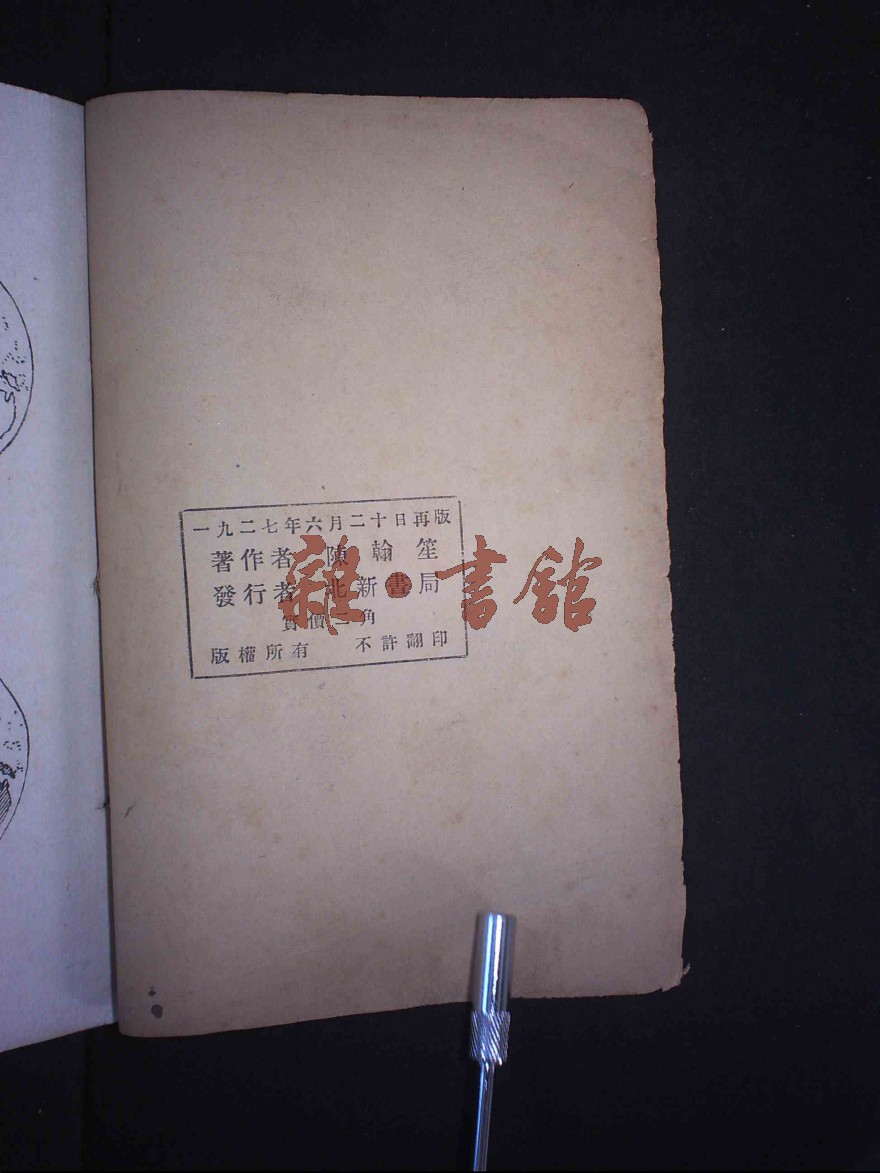 一九二七年六月二十日再版
著作者 陳翰笙
發行者 北新書局
實價二角
版權所有 不許翻印
雜·書館